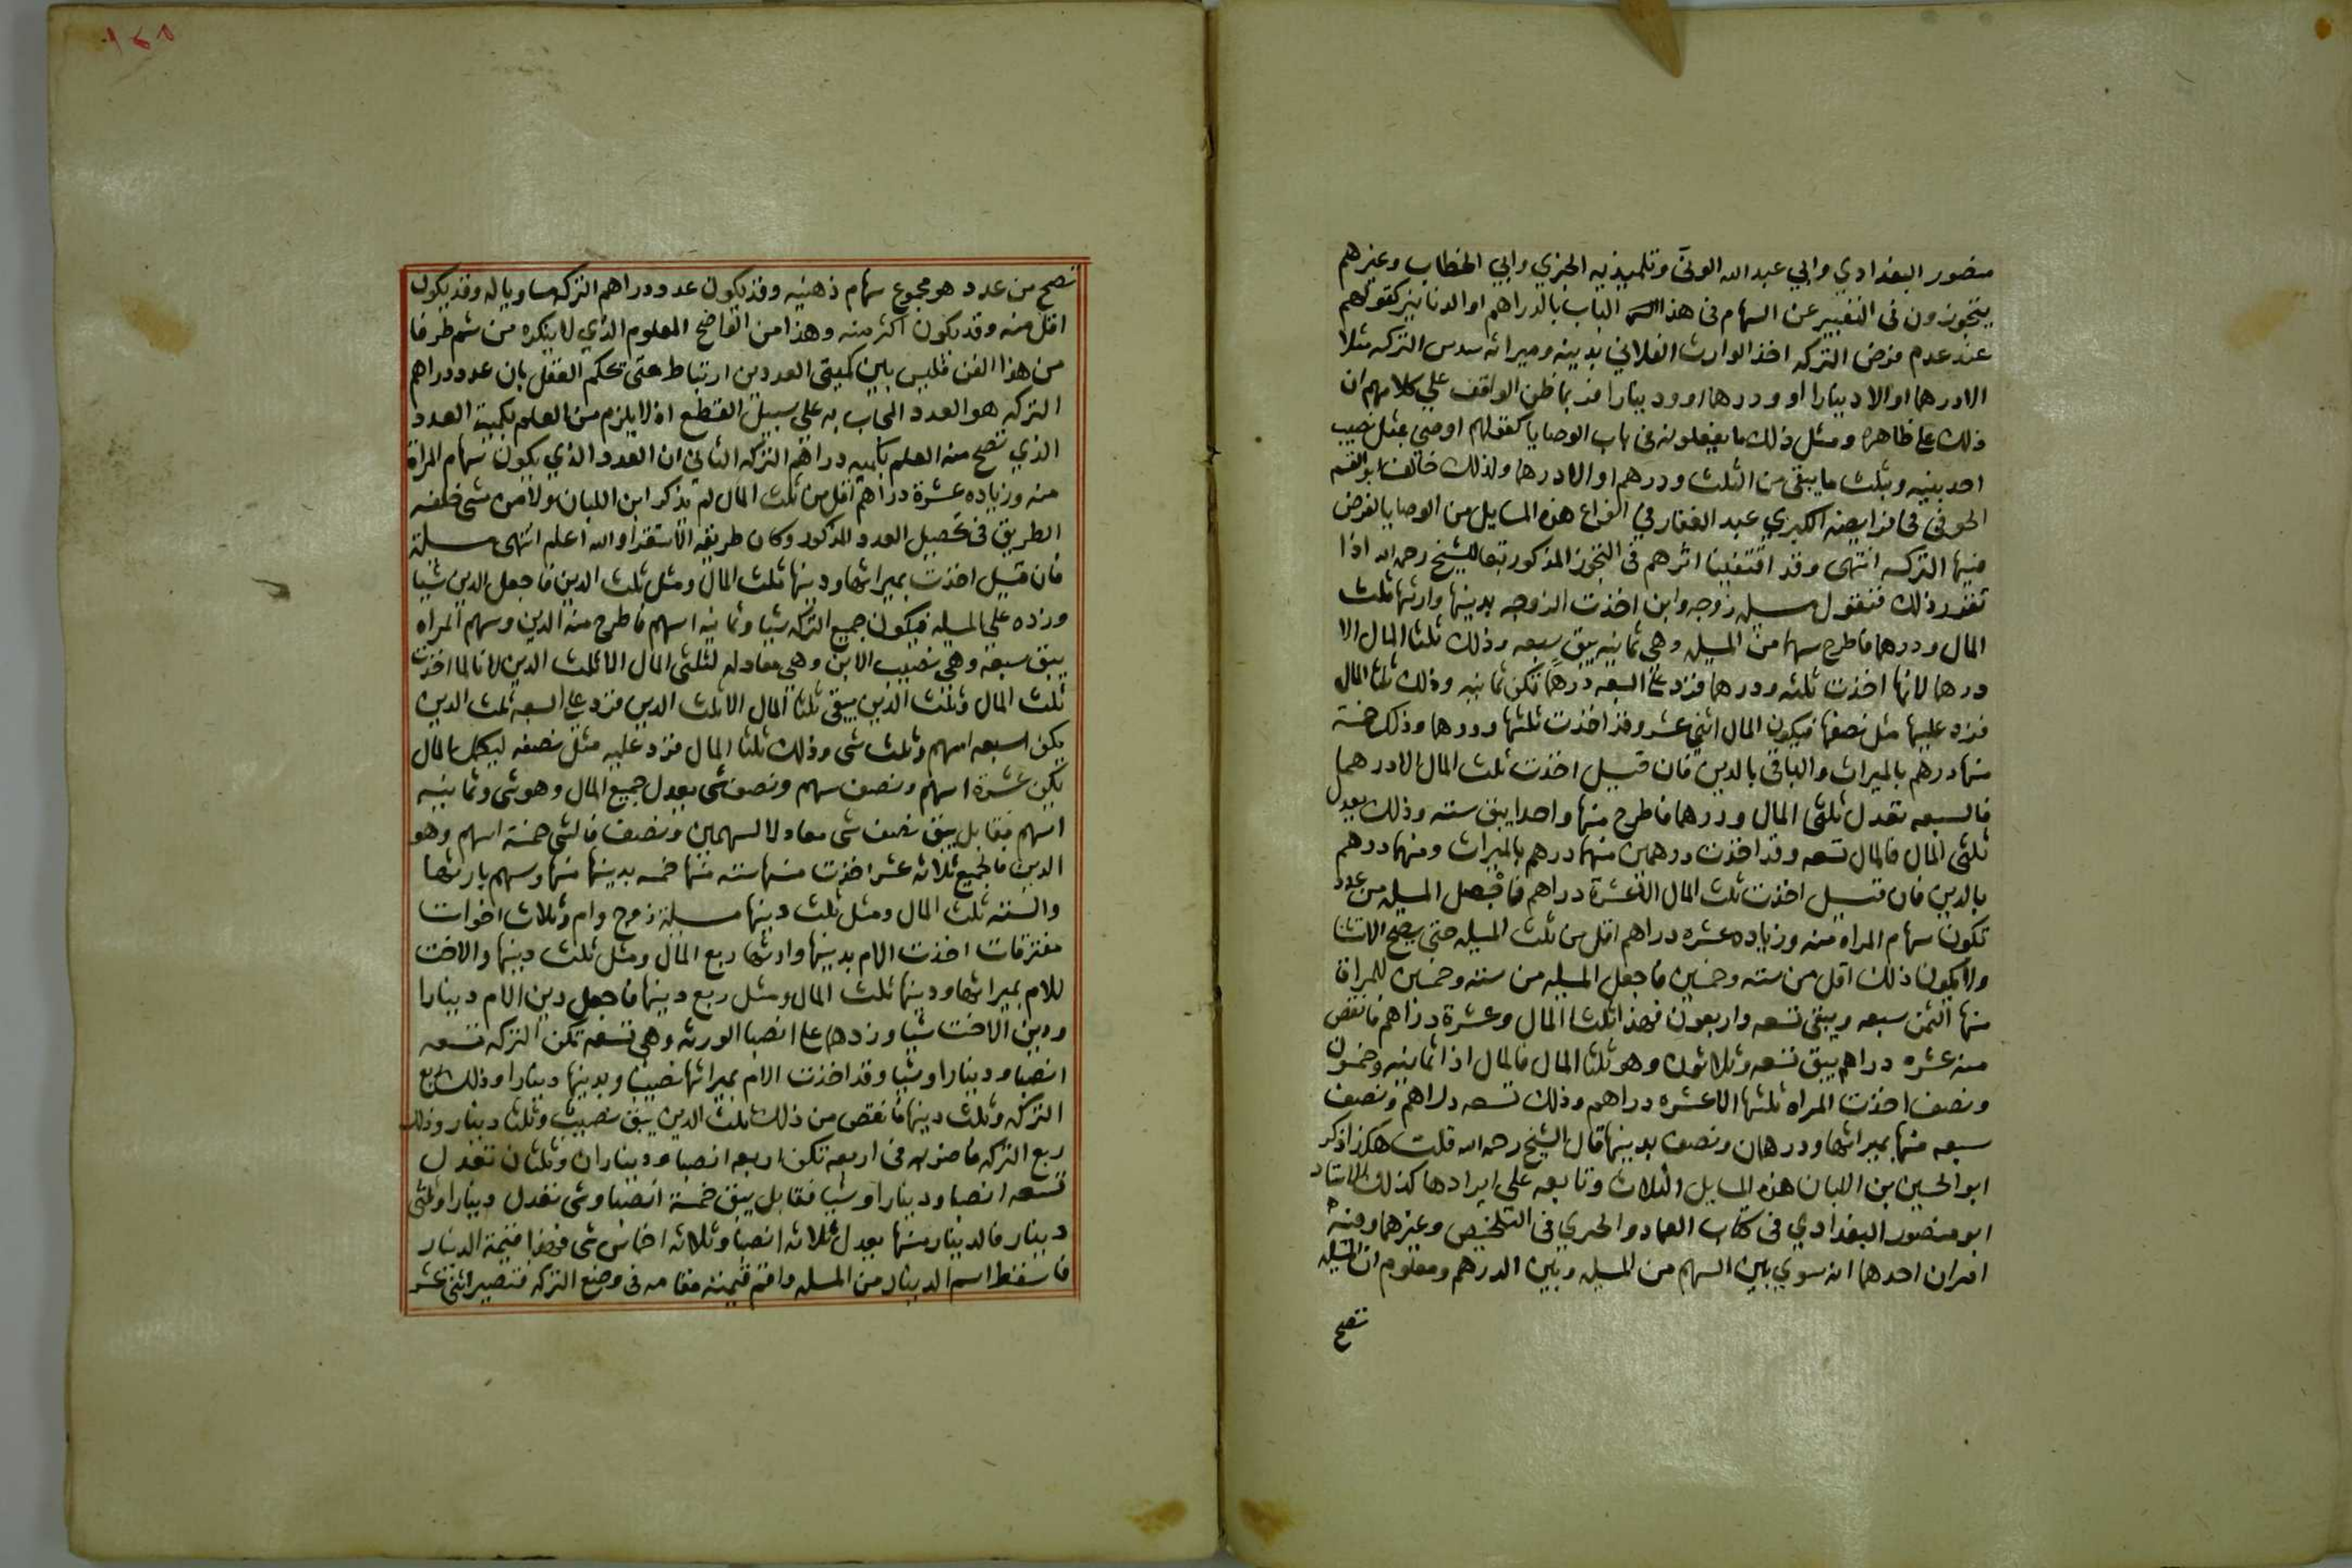 منصور البغدادي وابي عبد الله الونى وتلميذيه الخبري وابي الخطاب وغيرهم
يتجوزون في التعبير عن السهام في هذا الباب بالدراهم او الدنانير كقولهم
عند عدم فرض التركه اخذ الوارث الفلاني بدينه وميراثه سدس التركه مثلا
الا درهما او الا دينارا او ودرهما او ودينارا فربما ظن الواقف علي كلامهم ان
ذلك على ظاهره ومثل ذلك ما يفعلونه في باب الوصايا كقولهم اوصي بمثل نصيب
احد بنيه وبثلث ما يبقى من الثلث ودرهم او الا درهما ولذلك خالف ابو القسم
الحوفي في فرايضه الكبري عبد الغفار في انواع هذه المسايل من الوصايا لفرض
فيها التركه انتهى وقد اقتفينا اثرهم في التجوز المذكور تبعا للشيخ رحمه الله اذا
تقرر ذلك فنقول مسيله زوجه وابن اخذت الزوجه بدينها وارثها ثلث
المال ودرهما فاطرح سهما من المسيله وهي ثمانيه يبق سبعه وذلك ثلثا المال الا
درهما لانها اخذت ثلثه ودرهما فزد على السبعه درهما تكن ثمانيه وذلك ثلثا المال
فزد عليها مثل نصفها فيكون المال اثني عشر وقد اخذت ثلثها ودرهما وذلك خمسة
منها درهم بالميراث والباقي بالدين فان قيل اخذت ثلث المال الا درهما
فالسبعه تعدل ثلثى المال ودرهما فاطرح منها واحدا يبق سته وذلك يعدل
ثلثى المال فالمال تسعه وقد اخذت درهمين منهما درهم بالميراث ومنهما درهم
بالدين فان قيل اخذت ثلث المال الا عشرة دراهم فاجعل المسيله من عدد
تكون سهام المراه منه وزياده عشره دراهم اقل من ثلث المسيله حتى يصح الاستثنا
ولا يكون ذلك اقل من سته وخمسين فاجعل المسيله من سته وخمسين للمراة
منها الثمن سبعه ويبقى تسعه واربعون فهذا ثلثا المال وعشرة دراهم فانقص
منه عشره دراهم يبق تسعه وثلاثون وهو ثلثا المال فالمال اذا ثمانيه وخمسون
ونصف اخذت المراه ثلثها الا عشره دراهم وذلك تسعه دراهم ونصف
سبعه منها بميراثها ودرهمان ونصف بدينها قال الشيخ رحمه الله قلت هكذا ذكر
ابو الحسين بن اللبان هذه المسايل الثلاث وتابعه على ايرادها كذلك الاستاد
ابو منصور البغدادي في كتاب العماد والخبري في التلخيص وغيرهما وفيه
امران احدهما انه سوي بين السهم من المسيله وبين الدرهم ومعلوم ان المسيله
تصح
تصح من عدد هو مجموع سهام ذهنيه وقد يكون عدد دراهم التركه مساويا له وقد يكون
اقل منه وقد يكون اكثر منه وهذا من الواضح المعلوم الذي لا ينكره من شم طرفا
من هذا الفن فليس بين كميتى العددين ارتباط حتى يحكم العقل بان عدد دراهم
التركه هو العدد المجاب به على سبيل القطع اذ لا يلزم من العلم بكمية العدد
الذي تصح منه العلم بكميه دراهم التركه الثاني ان العدد الذي يكون سهام المراة
منه وزياده عشرة دراهم اقل من ثلث المال لم يذكر ابن اللبان ولا من مشى خلفه
الطريق في تحصيل العدد المذكور وكان طريقه الاستقرا والله اعلم انتهى مسيلة
فان قيل اخذت بميراثها ودينها ثلث المال ومثل ثلث الدين فاجعل الدين شيا
وزده على المسيله فيكون جميع التركه شيا وثمانيه اسهم فاطرح منه الدين وسهم المراه
يبق سبعه وهي نصيب الابن وهي معادله لثلثى المال الا ثلث الدين لانها لما اخذت
ثلث المال وثلث الدين يبقى ثلثا المال الا ثلث الدين فزد على السبعه ثلث الدين
يكن سبعه اسهم وثلث شى وذلك ثلثا المال فزد عليه مثل نصفه ليكمل المال
يكن عشرة اسهم ونصف سهم ونصف شى يعدل جميع المال وهو شى وثمانيه
اسهم فقابل يبق نصف شى معادلا لسهمين ونصف فالشى خمسة اسهم وهو
الدين فالجميع ثلاثه عشر اخذت منها سته منها خمسه بدينها منها وسهم بارثها
والسته ثلث المال ومثل ثلث دينها مسيلة زوج وام وثلاث اخوات
مفترقات اخذت الام بدينها وارثها ربع المال ومثل ثلث دينها والاخت
للام بميراثها ودينها ثلث المال ومثل ربع دينها فاجعل دين الام دينارا
ودين الاخت شيا وزدهما على انصبا الورثه وهي تسعه تكن التركه تسعه
انصبا ودينارا وشيا وقد اخذت الام بميراثها نصيبا وبدينها دينارا وذلك ربع
التركه وثلث دينها فانقص من ذلك ثلث الدين يبق نصيب وثلثا دينار وذلك
ربع التركه فاضربه في اربعه تكن اربعه انصبا وديناران وثلثان تعدل
تسعه انصبا ودينارا وشيا فقابل يبق خمسة انصبا وشى تعدل دينارا وثلثى
دينار فالدينار منها يعدل ثلاثه انصبا وثلاثه اخماس شى فهذا قيمة الدينار
فاسقط اسم الدينار من المسله واقم قيمته مقامه في وضع التركه فتصير اثنى عشر